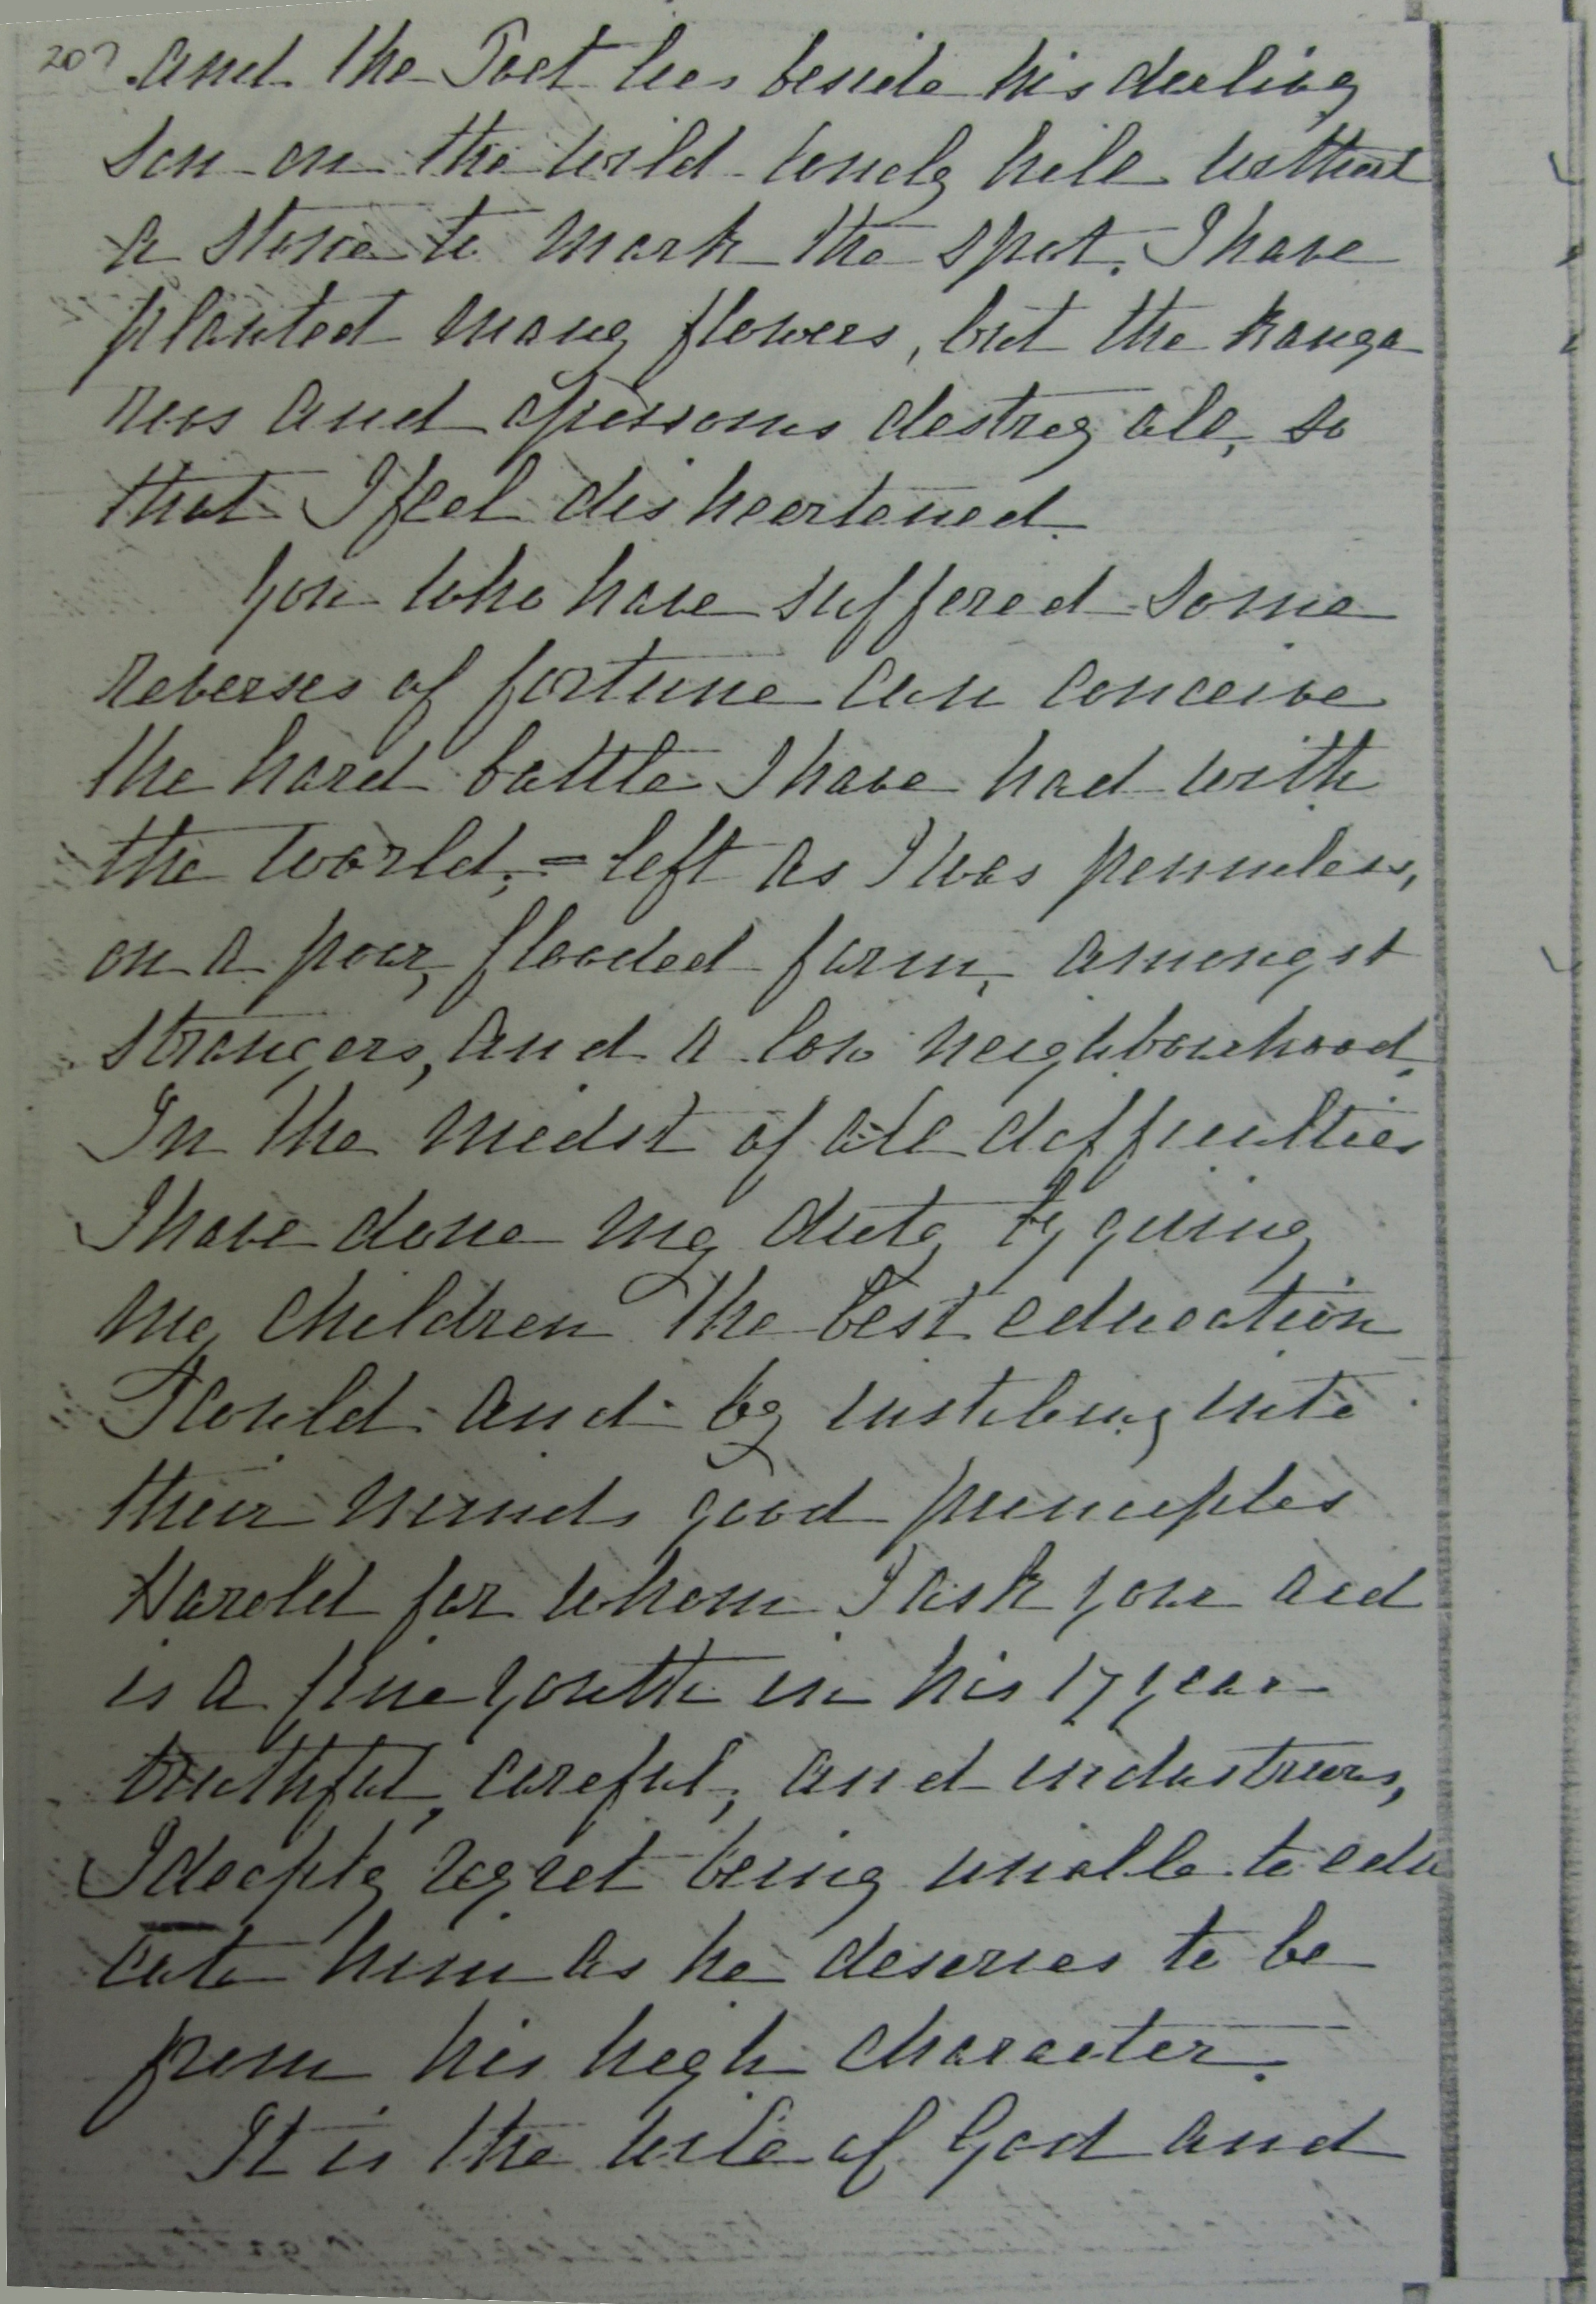 207 and the Poet lies beside his darling
son on the wild lonely hill without
a stone to mark the spot. I have
planted many flowers, but the kanga
roos and opossoms destroy all, so
that I feel disheartened.
You who have suffered some
reverses of fortune can conceive
the hard battle I have had with
the world; = left as I was penniless,
on a poor, flooded farm, amongst
strangers, and a low neighbourhood.
In the midst of all difficulties
I have done my duty by giving
my children the best education
I could and by instilling into
their minds good principles
Harold for whom I ask your aid
is a fine youth in his 17 year
truthful, careful, and industrious,
I deeply regret being unable to edu
cate him as he deserves to be
from his high character.
It is the will of God and